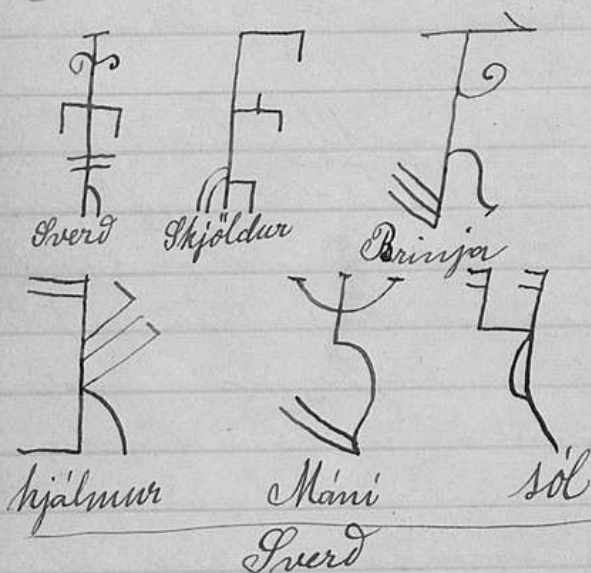 Sverð Skjöldur Brinja
hjálmur Máni sól
Sverð